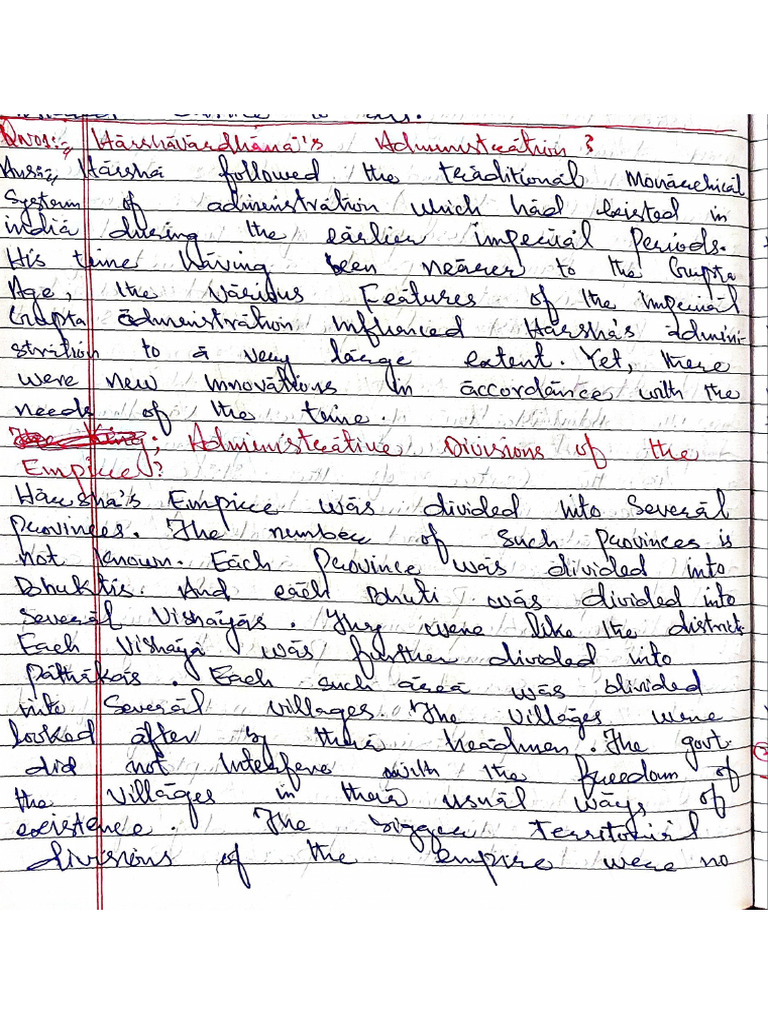 Qno1:- Harshavardhana's Administration ?
Ans:- Harsha followed the traditional Monarchical
System of administration which had existed in
india during the earlier imperial Periods.
His time Having been nearer to the Gupta
Age, the Various Features of the imperial
Gupta administration influenced Harsha's admini-
stration to a very large extent. Yet, there
were new innovations in accordance with the
needs of the time.
Administrative Divisions of the
Empire ?
Harsha's Empire was divided into Several
provinces. The number of such provinces is
not known. Each Province was divided into
Bhuktis. And each Bhuti was divided into
several Vishayas. They were like the districts
Each Vishaya was further divided into
Pathakas. Each such area was divided
into Several villages. The villages were
looked after by their headmen. The govt.
did not Interfere with the freedom of
the Villages in their usual ways of
existence. The bigger Territorial
divisions of the empire were no